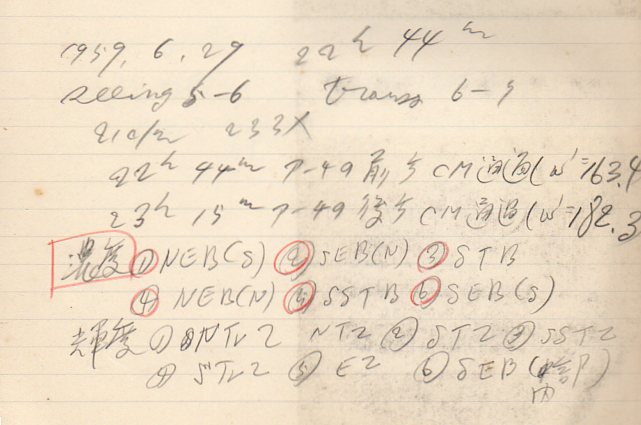 1959. 6. 29 22h 44m
seeing 5-6 trans 6-5
21cm 233X
22h 44m 前 CM通過(ω'=163.4
23h 15m 後 CM通過(ω'=182.3
濃度 ① NEB(S) ② SEB(N) ③ STB
④ NEB(N) ⑤ SSTB ⑥ SEB(S)
輝度 ① NTrZ NTZ ② STZ ③ SSTZ
④ STrZ ⑤ EZ ⑥ SEB(